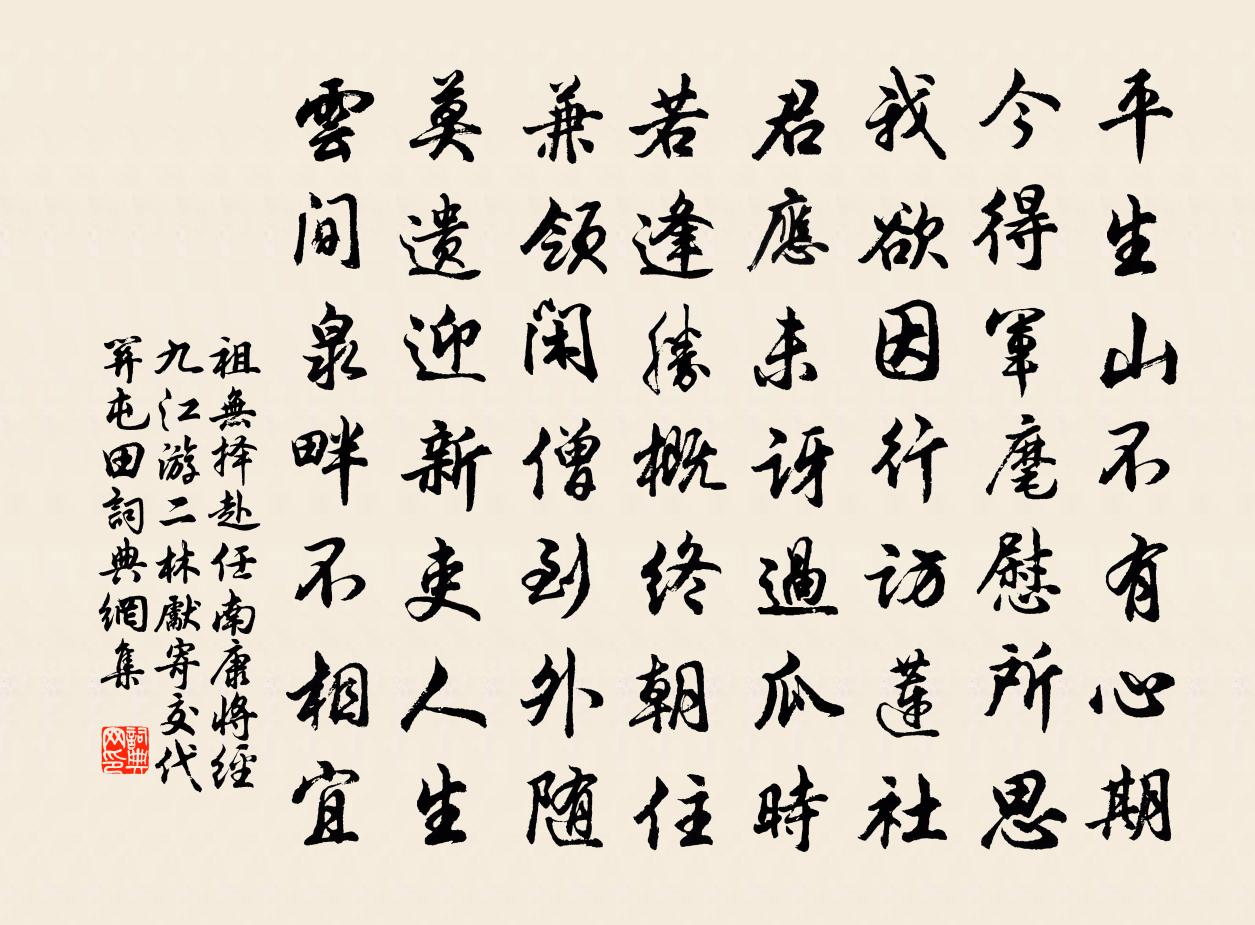 平生山水有心期
今得軍麾慰所思
我欲因行訪蓮社
君應未訝過瓜時
若逢勝概終朝住
兼領閑僧到外随
莫遣迎新吏人生
雲間泉畔不相宜
祖無择赴任南康將經
九江游二林獻寄交代
笄屯田詞典網集
詞典网印